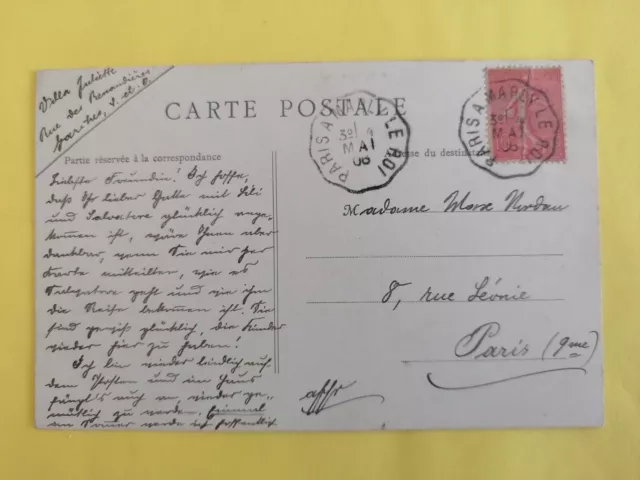 Villa Juliette
Rue des Renaudières
Garches, S. et O.
CARTE POSTALE
PARIS A MARLY-LE-ROI
3E
MAI
06
PARIS A MARLY-LE-ROI
3E
MAI
06
Partie réservée à la correspondance
Adresse du destinat
Liebste Freundin! Ich hoffe,
daß Ihr lieber Gatte mit Lili
und Salvatore glücklich ange-
kommen ist, wäre Ihnen aber
dankbar, wenn Sie mir per
Karte mitteilten, wie es
Salvatore geht und wie ihm
die Reise bekommen ist. Sie
sind gewiß glücklich, die Kinder
wieder hier zu haben!
Ich bin wieder leidlich auf
dem Posten und im Haus
fängt's auch an, wieder ge-
mütlich zu werden. Einmal
im Sommer werde ich hoffentlich
Madame Max Nordau
8, rue Léonie
Paris (9me)
affr